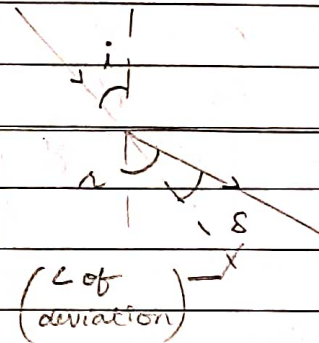 i
r
δ
(∠ of
deviation)